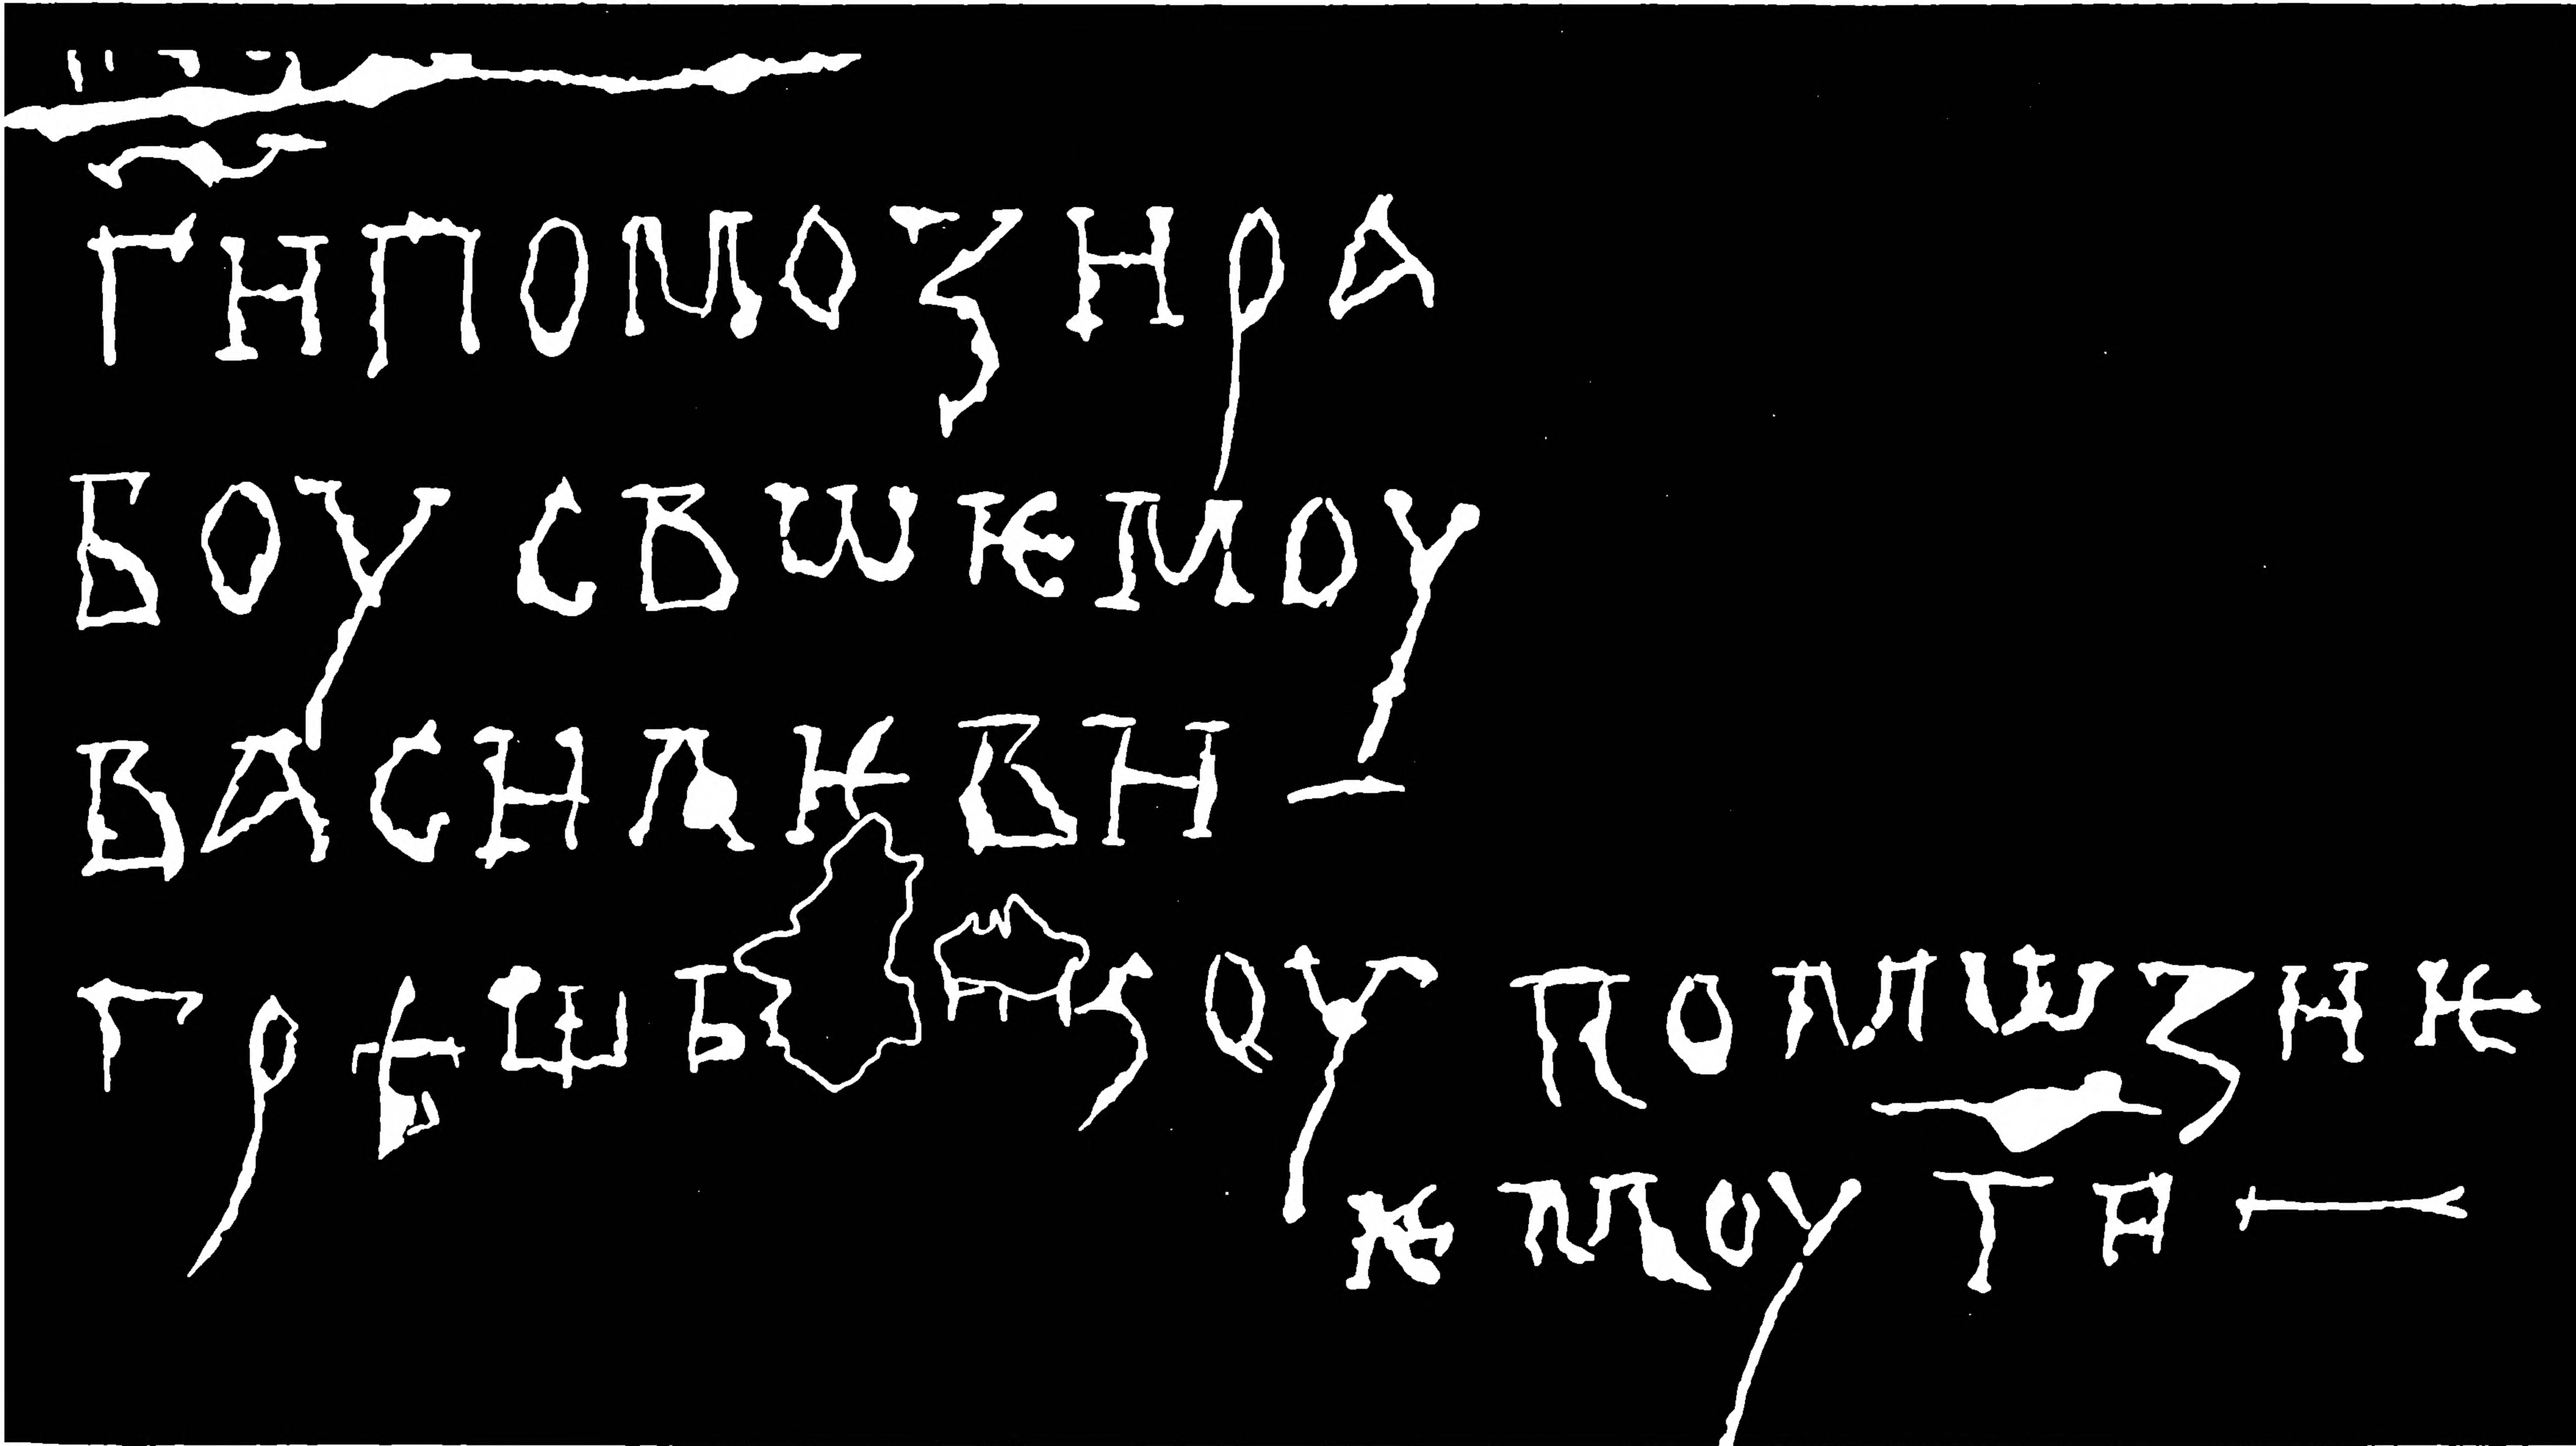 ГНПОМОЗНРА
БОУ СВШѤМОУ
ВАСНЛѤВН
ГРѢШЬ ОУ ПОМШЗНѤ
ѤМОУ ГН